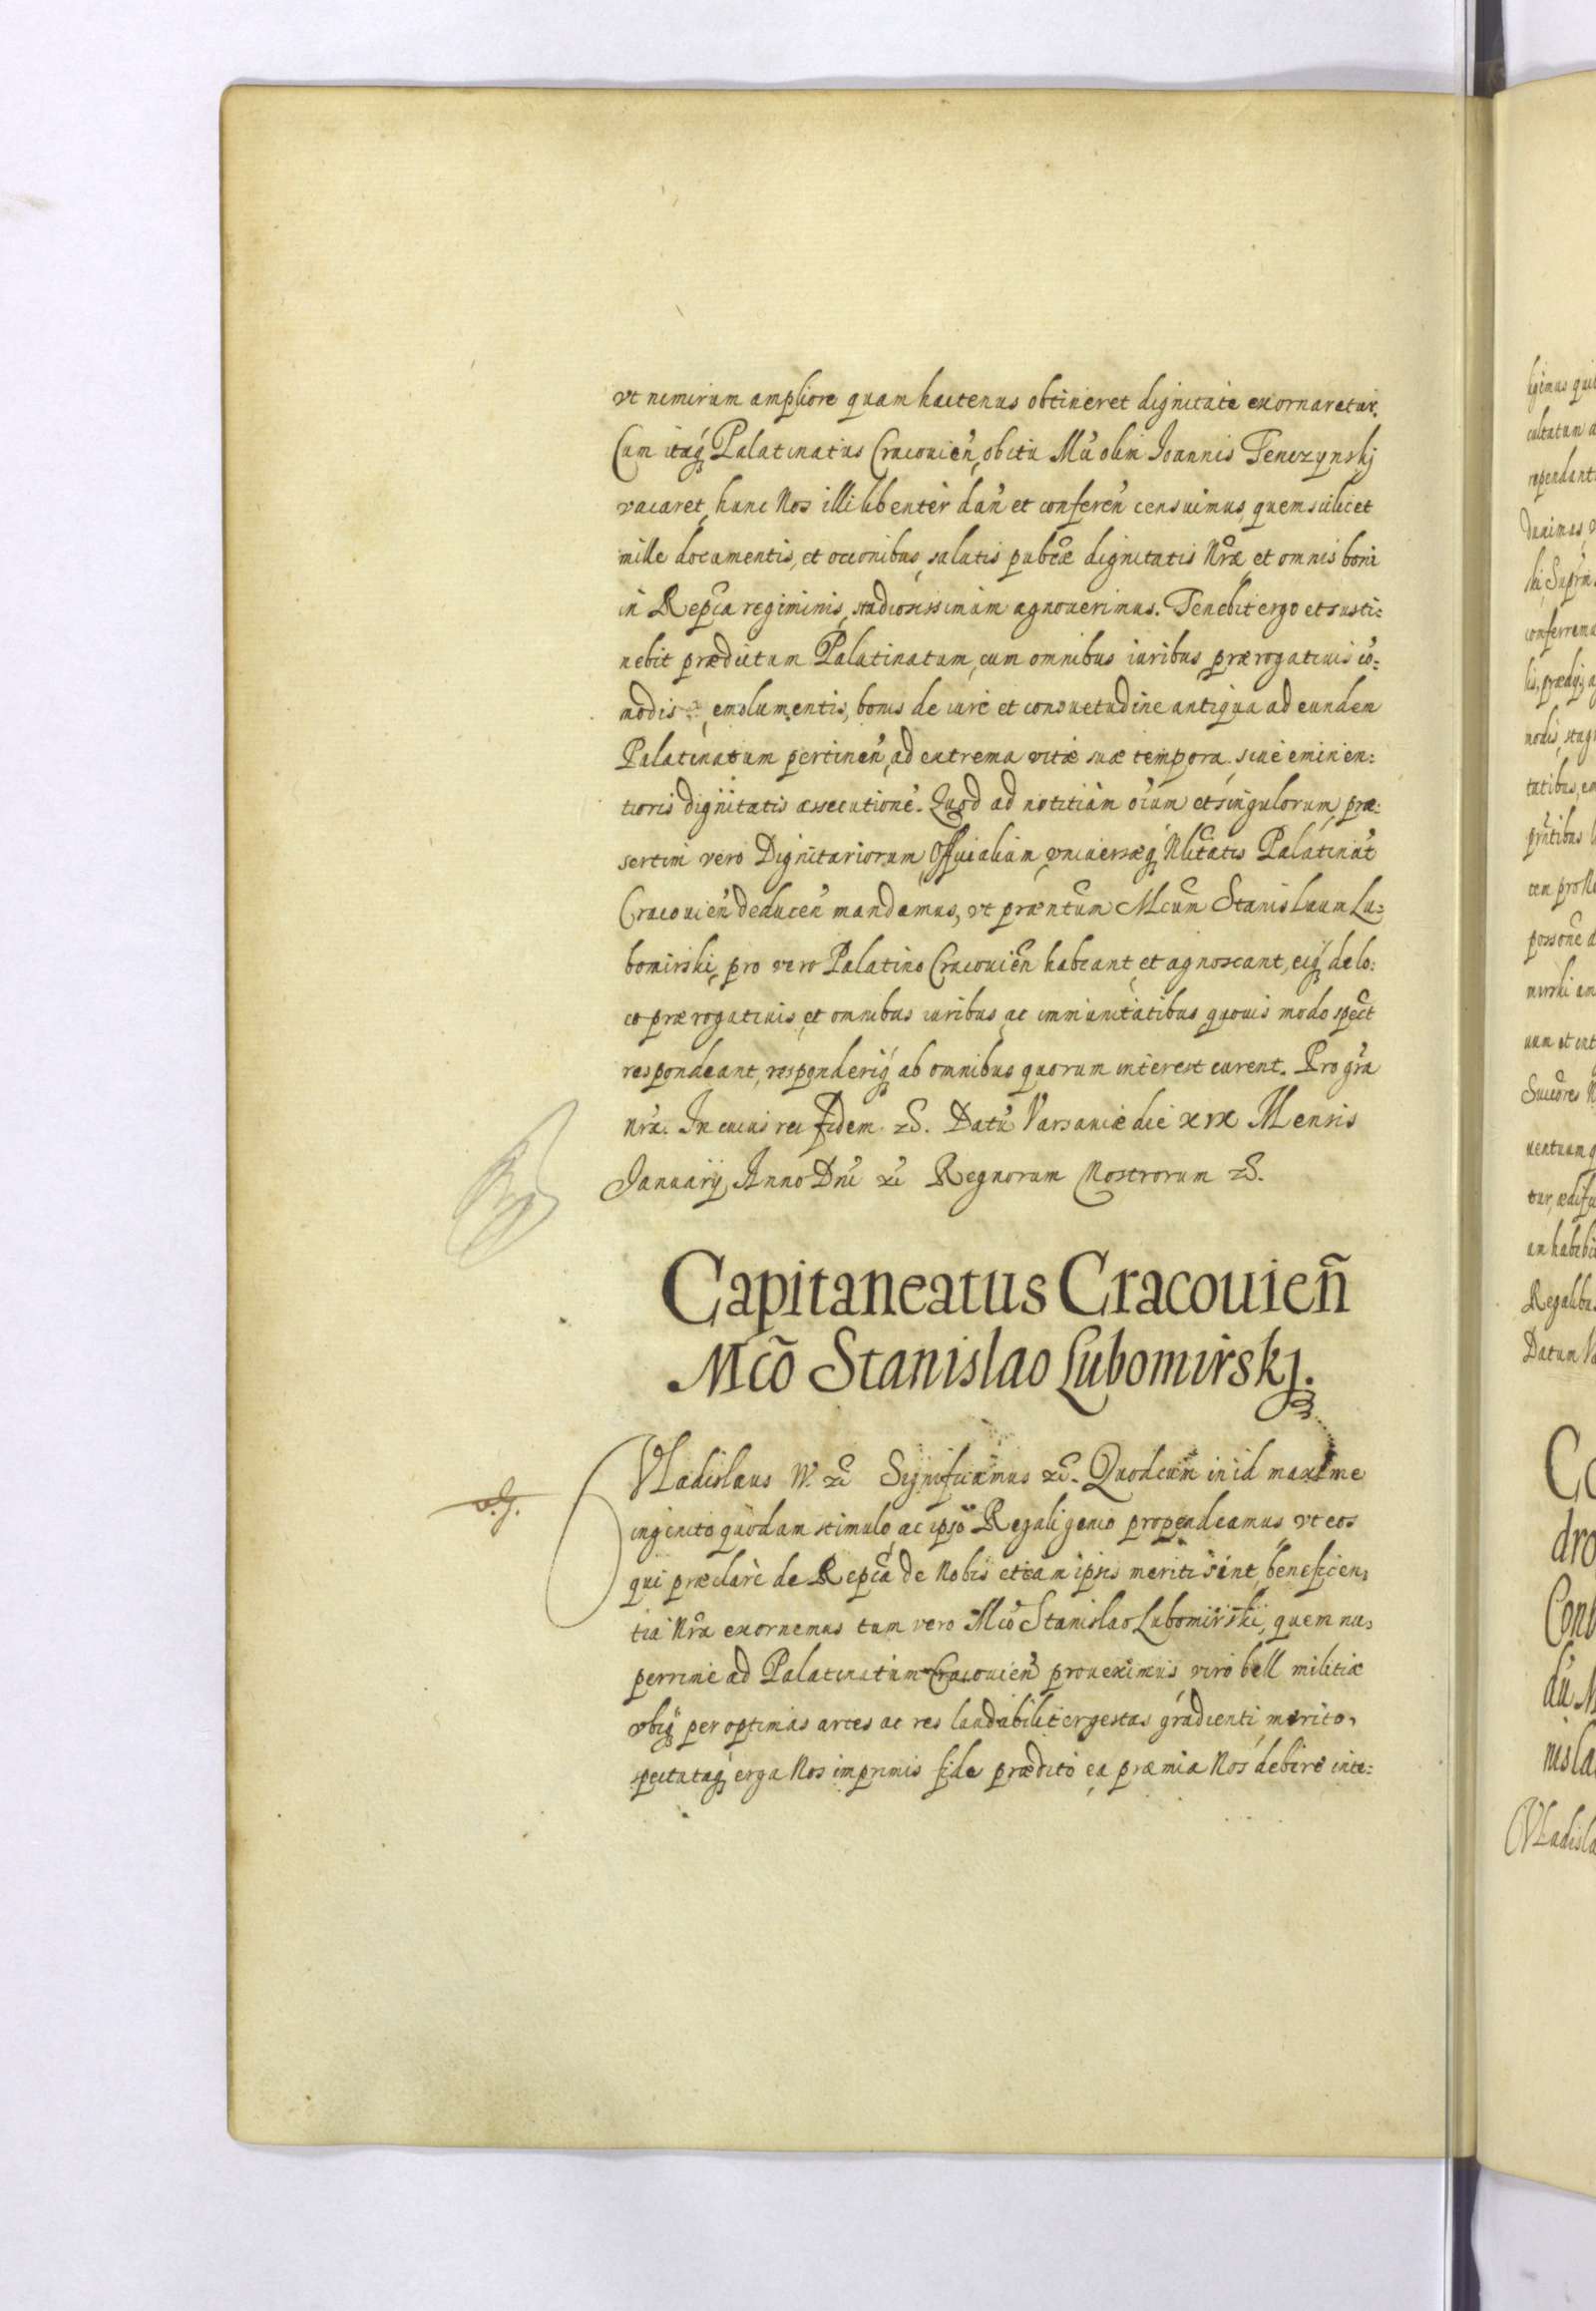 vt nimirum ampliore quam hactenus obtineret dignitate exornaretur.
Cum itaq́ Palatinatus Cracouień, obitu Mći olim Ioannis Tenczynskj
vacaret, hunc Nos illi libentèr dań et confereń censuimus, quem scilicet
mille documentis, et occonibus, salutis pubcæ dignitatis Nræ, et omnis boni
in Repca regiminis, studiosissimùm agnouerimus. Tenebit ergo et susti:
nebit prædictum Palatinatum, cum omnibus iuribus prærogatiuis cō:
modis, emolumentis, bonis de iure et consuetudine antiqua ad eundem
Palatinatum pertineń, ad extrema vitæ suæ tempora, siue eminen:
tioris dignitatis assecutioné. Quod ad notitiam oium et singulorum, præ:
sertim vero Dignitariorum, Officialium, vniuersæq́ Nlitatis Palatinat́
Cracouień deduceń mandamus, vt præntem Mcum Stanislaum Lu:
bomirski, pro vero Palatino Cracouień habeant, et agnoscant, eiq́ de lo:
co prærogatiuis, et omnibus iuribus, ac immunitatibus quouis modo spect
respondeant, responderiq́ ab omnibus quorum interest curent. Pro gra
nra. In cuius rei fidem &. Datū Varsauiæ die XIX Mensis
Januarij, Anno Dni &c Regnorum Nostrorum &.
Capitaneatus Cracouieñ
Mcõ Stanislao Lubomirskj.
Vladislaus IV. &c Significamus &c. Quod cum in id maxime
ingenito quodam stimulo, ac ipso Regali genio propendeamus vt eos
qui præclarè de Repca de Nobis etiam ipsis meriti sint, beneficen,
tia Nra exornemus tum vero Mco Stanislao Lubomirski, quem nu,
perrime ad Palatinatum Cracouień proueximus, viro bell militiæ
vbiq́ per optimas artes ac res laudabilitèr gestas gradienti, merito,
spectataq́ erga Nos imprimis fide prædito ea præmia Nos debere inte: